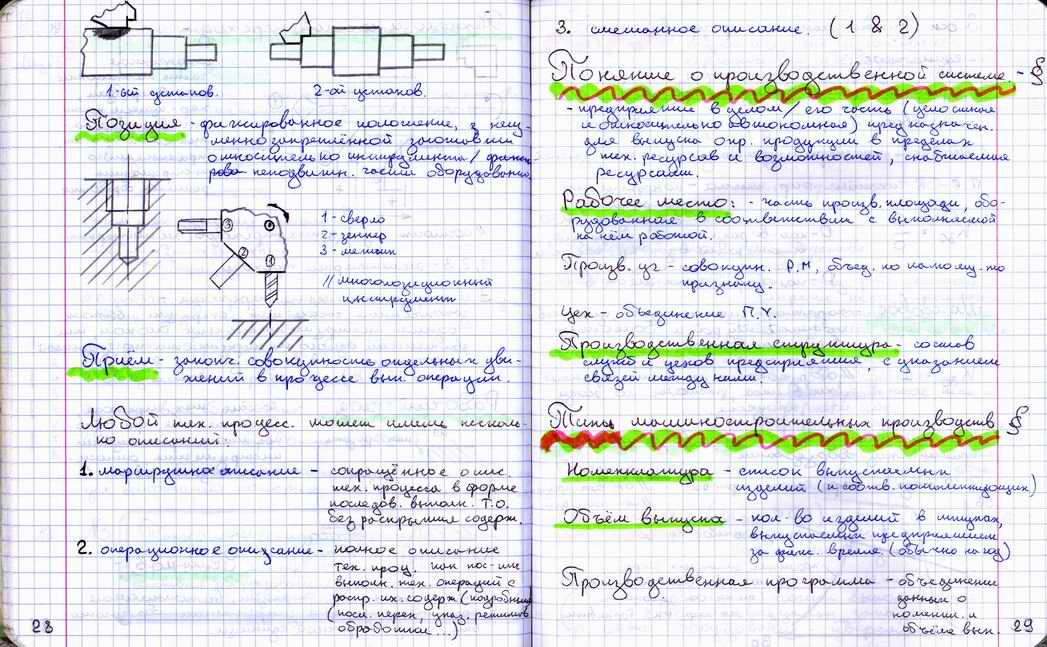 1-ый установ.
2-ой установ.
Позиция - фиксированное положение, з. неиз-
менно закреплённой заготовки
относительно инструмента/
неподвижн. части оборудования
1 - сверло
2 - зенкер
3 - метчик
// многопозиционный
инструмент
Приём - законч. совокупность отдельных дви-
жений в процессе вып. операции.
Любой тех. процесс. может иметь несколь-
ко описаний:
1. маршрутное описание - сокращённое опис.
тех. процесса в форме
последов. выполн. Т.О.
без раскрытия содерж.
2. операционное описание - полное описание
тех. проц. как пос-ти
выполн. тех. операций с
раскр. их. содерж (подробный
(посл. перех, указ. режимов
обработки ...)
28
3. смешанное описание. (1 & 2)
Понятие о производственной системе. - §
- предприятие в целом / его часть (целостная
и относительно автономная) предназначен.
для выпуска опр. продукции в пределах
тех. ресурсов и возможностей, снабжаемая
ресурсами.
Рабочее место: - часть произв. площади, обо-
рудованная в соответствии с выполняемой
на нём работой.
Произв. уч - совокупн. Р.М, объед. по какому-то
признаку.
Цех - объединение П.У.
Производственная структура - состав
служб и цехов предприятия, с указанием
связей между ними.
Типы машиностроительных производств §
Номенклатура - список выпускаемых
изделий (и соотв. комплектующих)
Объём выпуска - кол-во изделий в штуках,
выпускаемых предприятием
за фикс. время (обычно на год)
Производственная программа - объединение
данных о
номенкл. и
объёме вып.
29